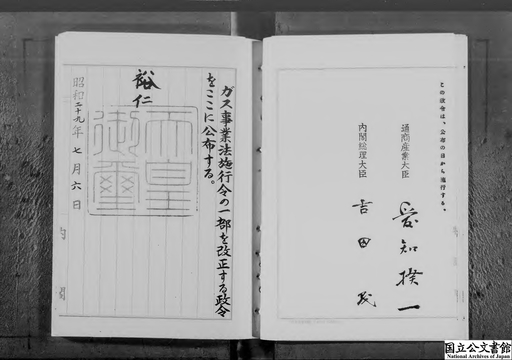 この政令は、公布の日から施行する。
通商産業大臣 愛知揆一
内閣総理大臣 吉田茂
ガス事業法施行令の一部を改正する政令
をここに公布する。
裕仁
天皇
御璽
昭和二十九年七月六日
国立公文書館
National Archives of Japan